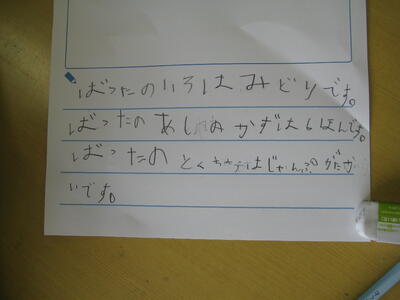 ばったのいろはみどりです。
ばったの あしの かずは6ほんです。
ばったの とくちょうはじゃんぷの がたか
いです。